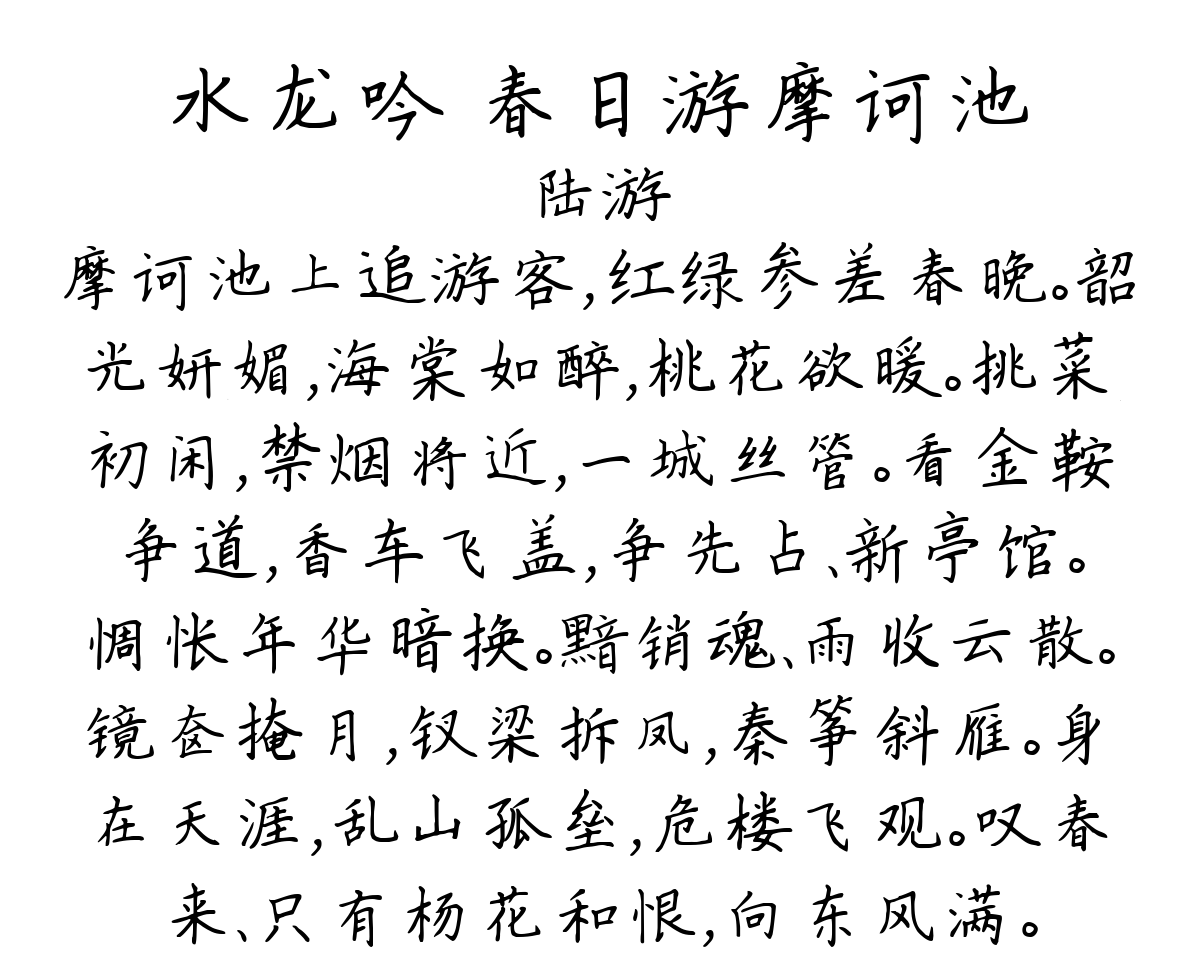 水龙吟 春日游摩诃池
陆游
摩诃池上追游客,红绿参差春晚。韶
光妍媚,海棠如醉,桃花欲暖。挑菜
初闲,禁烟将近,一城丝管。看金鞍
争道,香车飞盖,争先占、新亭馆。
惆怅年华暗换。黯销魂、雨收云散。
镜奁掩月,钗梁拆凤,秦筝斜雁。身
在天涯,乱山孤垒,危楼飞观。叹春
来、只有杨花和恨,向东风满。